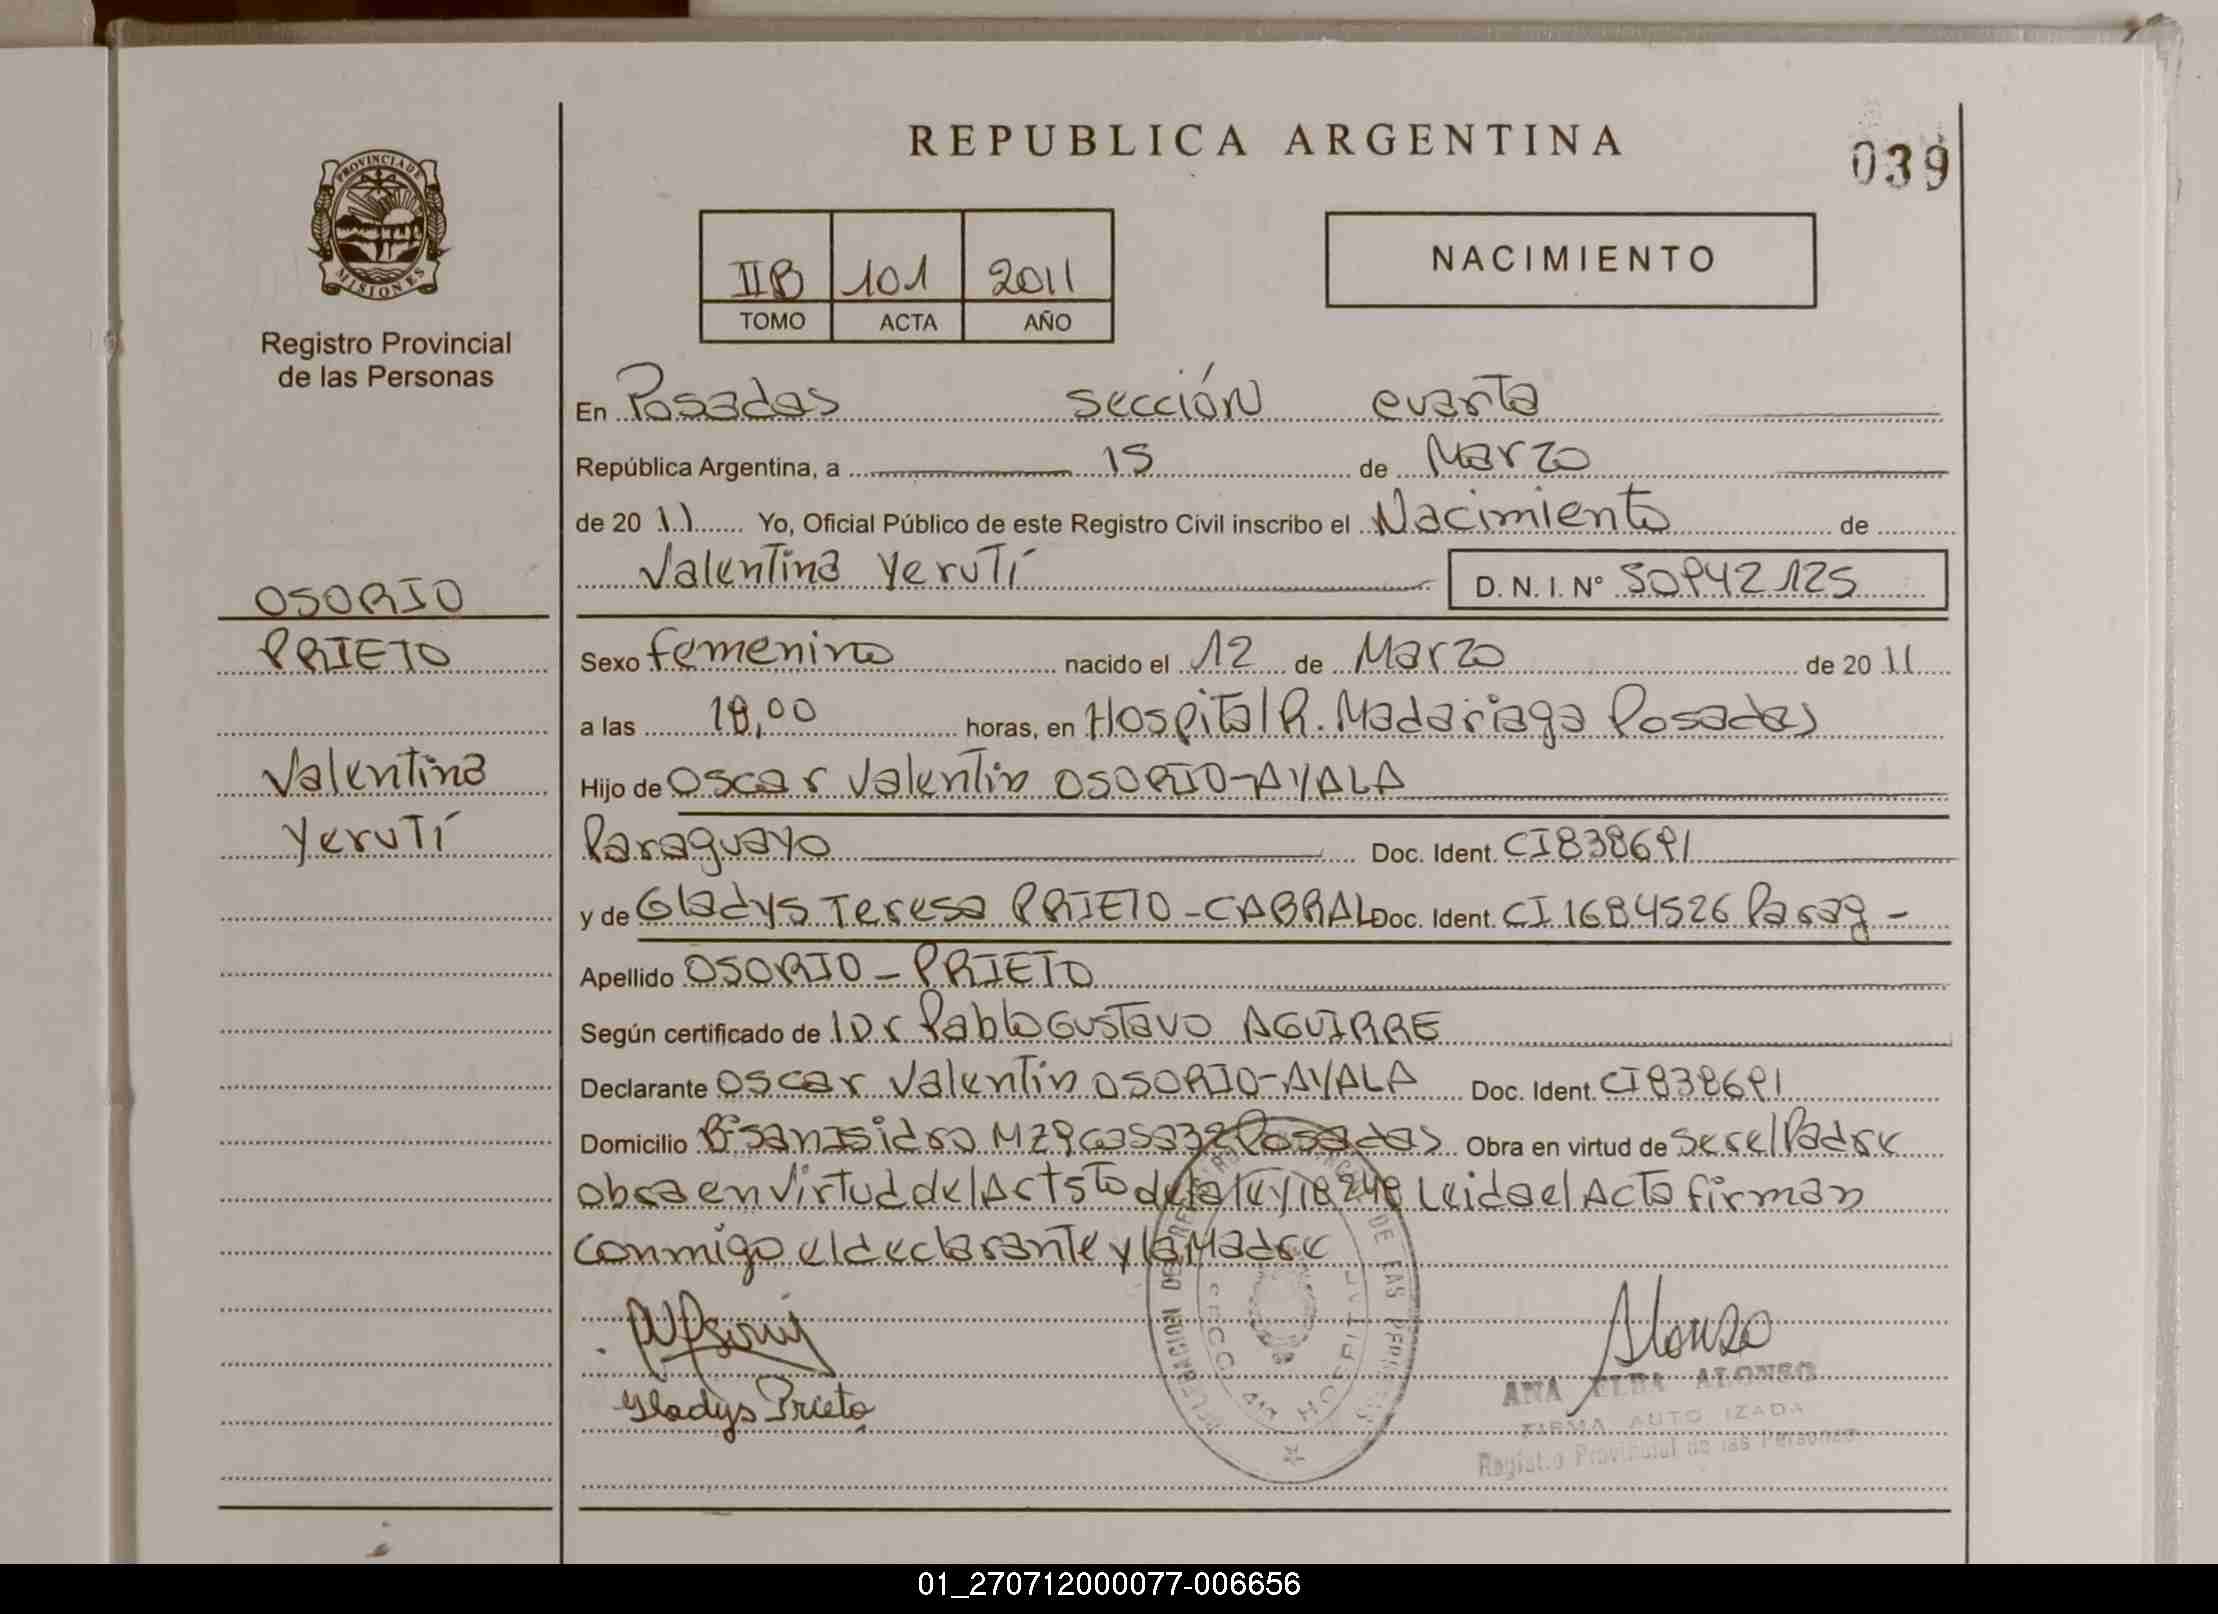 REPUBLICA ARGENTINA
039
PROVINCIA DE
MISIONES
Registro Provincial
de las Personas
IIB 101 2011
TOMO ACTA AÑO
NACIMIENTO
En Posadas sección cuarta
República Argentina, a 15 de Marzo
de 20 11 Yo, Oficial Público de este Registro Civil inscribo el Nacimiento de
Valentina Yerutí D. N. I. N° 50942125
OSORIO
PRIETO
Valentina
Yerutí
Sexo femenino nacido el 12 de Marzo de 20 11
a las 18,00 horas, en Hospital R. Madariaga Posadas
Hijo de Oscar Valentin OSORIO-AYALA
Paraguayo Doc. Ident. CI838691
y de Gladys Teresa PRIETO-CABRAL Doc. Ident. CI 1684526 Parag -
Apellido OSORIO - PRIETO
Según certificado de Dr Pablo Gustavo AGUIRRE
Declarante Oscar Valentin OSORIO-AYALA Doc. Ident. CI838691
Domicilio B° San Isidro Mz 9 casa 32 Posadas Obra en virtud de ser el Padre
obra en virtud del Art 5to de la ley 18248 Leida el Acta firman
conmigo el declarante y la Madre
Gladys Prieto
Alonso
ANA ELBA ALONSO
FIRMA AUTO IZADA
Registro Provincial de las Personas
DE LAS PERSONAS
HOSPIT
01_270712000077-006656